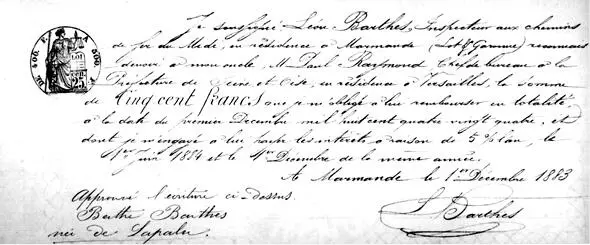 Je soussigné Léon Barthes, Inspecteur aux chemins
de fer du Midi, en résidence à Marmande (Lot & Garonne) reconnais
devoir à mon oncle, M Paul Raymond Chef de bureau à la
Préfecture de Seine et Oise, en résidence à Versailles, la somme
de Cinq cent francs que je m'oblige à lui rembourser en totalité
à la date du premier Décembre mil huit cent quatre vingt quatre, et
dont je m'engage à lui payer les intérêts à raison de 5 % l'an, le
1er Juin 1884 et le 1er Décembre de la même année.
A Marmande le 1er Décembre 1883
Approuvé l'écriture ci-dessus
Berthe Barthes
née de Lapalu.
L Barthes